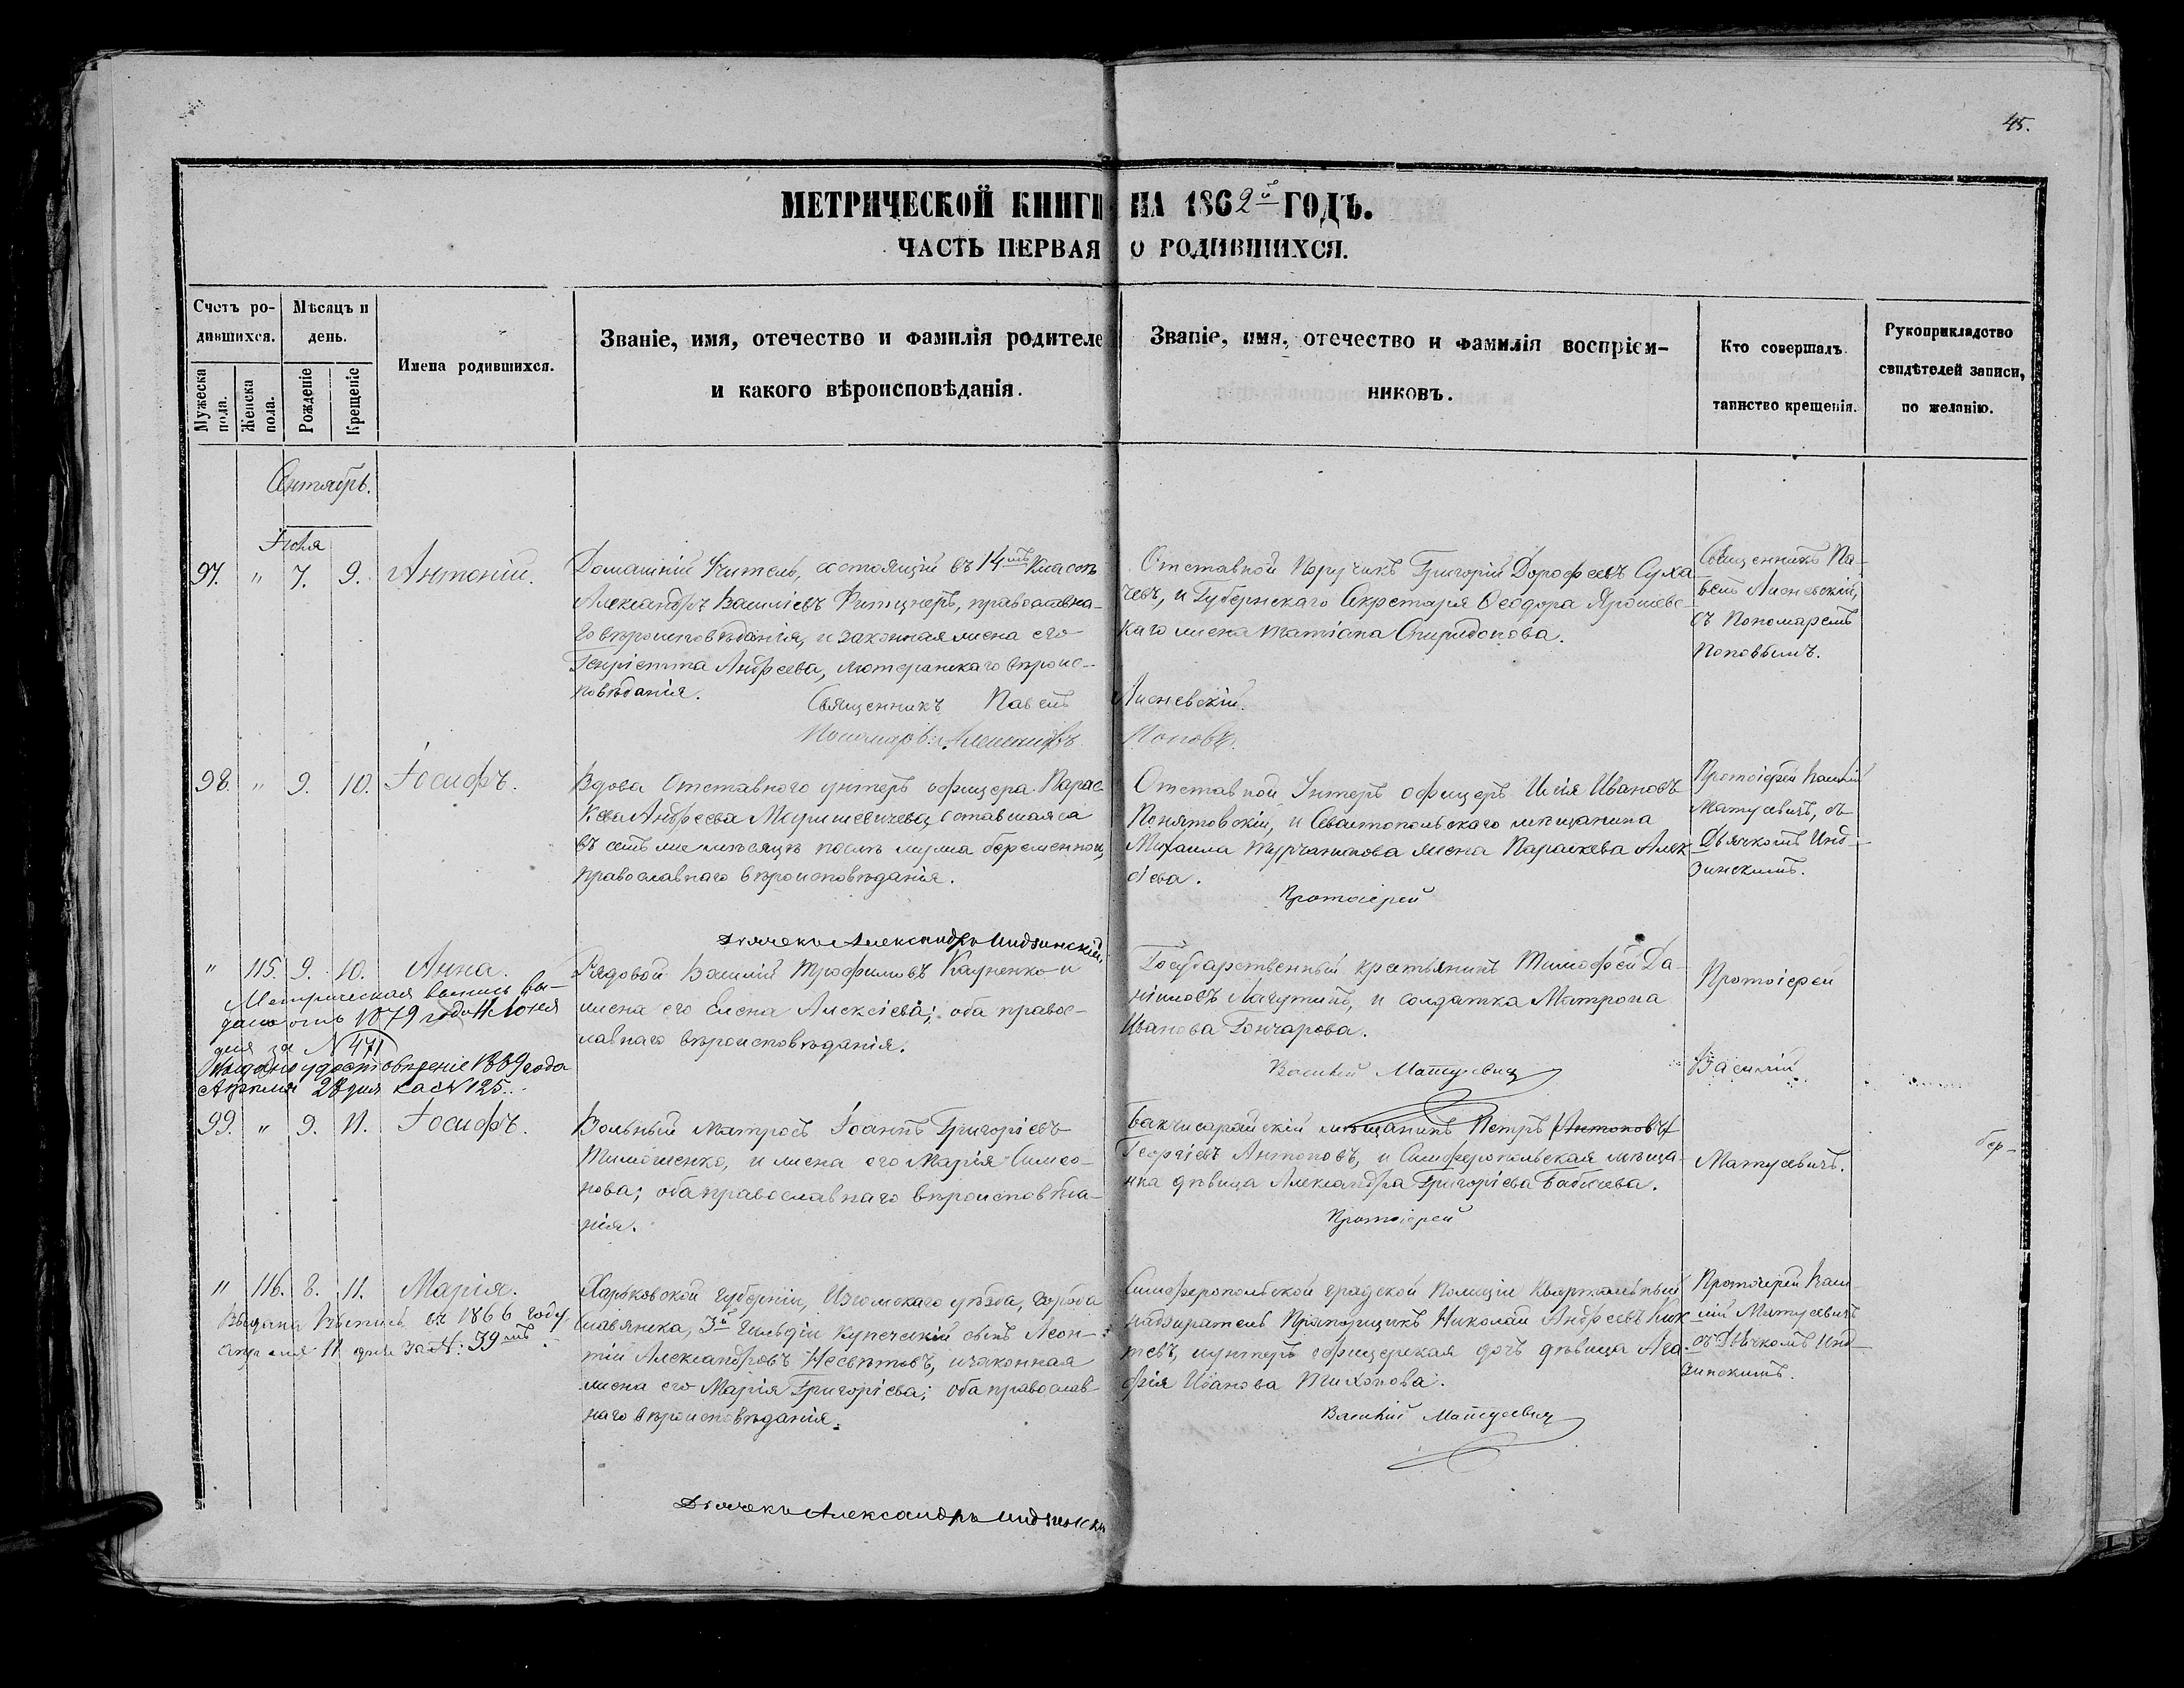 45.
МЕТРИЧЕСКОЙ КНИГИ НА 1862й ГОДЪ.
ЧАСТЬ ПЕРВАЯ О РОДИВШИХСЯ.
Счетъ ро-
дившихся.
Мужеска пола.
Женска пола.
Мѣсяцъ и
день.
Рожденіе
Крещеніе
Имена родившихся.
Званіе, имя, отечество и фамилія родителе
и какого вѣроисповѣданія.
Званіе, имя, отечество и фамилія воспріем-
никовъ.
Кто совершалъ
таинство крещенія.
Рукоприкладство
свидѣтелей записи,
по желанію.
97. " 7. 9. Антоній.
Домашній Учитель, состоящій въ 14мъ Классѣ
Александръ Василіевъ, православна-
го вѣроисповѣданія, и законная жена его
Генріетта Андреева, лютеранскаго вѣроис-
повѣданія.
Отставной Поручикъ Григорій Дорофеевъ Суха-
чевъ, и Губернскаго Секретаря Ѳеодора Ярошевс-
каго жена Татіана Спиридонова.
Священникъ Па-
велъ Лисневскій,
съ Пономаремъ
Поповымъ.
Священникъ Павелъ Лисневскій.
Пономарь Александръ Поповъ.
98. " 9. 10. Іосифъ.
Вдова Отставного унтеръ офицера Парас-
кева Андреева, оставшаяся
въ семь мѣсяцъ послѣ мужа беременной,
православнаго вѣроисповѣданія.
Отставной Унтеръ офицеръ Илія Ивановъ
Понятовскій, и Севастопольскаго мѣщанина
Михаила жена Параскева Алек-
сіева.
Протоіерей Василій
Матусевичъ, съ
Дьячкомъ Инд-
зинскимъ.
Протоіерей
Дьячекъ Александръ Индзинскій.
" 115. 9. 10. Анна.
Метрическая выпись вы-
дана 1879 года
дня за № 471
Выдано удостовѣреніе 1889 года
Апрѣля 28 дня за № 125.
Рядовой Василій Трофимовъ Кауненко и
жена его Елена Алексіева; оба правос-
лавнаго вѣроисповѣданія.
Государственный крестьянинъ Тимофей Да-
ніиловъ Лагутинъ, и солдатка Матрона
Иванова Гончарова.
Протоіерей
Василій Матусевичъ
Василій
99. " 9. 11. Іосифъ.
Вольный матросъ Іоаннъ Григоріевъ
Тимошенко, и жена его Марія Симео-
нова; оба православнаго вѣроисповѣда-
нія.
Бакчисарайскій мѣщанинъ Петръ (Антоновъ)
Георгіевъ Антоновъ, и Симферопольская мѣща-
нка дѣвица Александра Григоріева Бабаева.
Матусевичъ.
Протоіерей
" 116. 8. 11. Марія.
Выдана Выпись въ 1866 году
Апрѣля 11 дня за №: 39мъ.
Харьковской губерніи, Изюмскаго уѣзда, города
Славянска, 3й Гильдіи купеческій сынъ Леон-
тій Александровъ Несвѣтовъ, и законная
жена его Марія Григоріева; оба православ-
наго вѣроисповѣданія.
Симферопольской градской Полиціи Квартальный
надзиратель Прапорщикъ Николай Андреевъ
и унтеръ офицерская дочь дѣвица Ага-
фія Иванова Тихонова.
Протоіерей Васи-
лій Матусевичъ
съ Дьячкомъ Инд-
зинскимъ.
Василій Матусевичъ
Дьячекъ Александръ Индзинскій